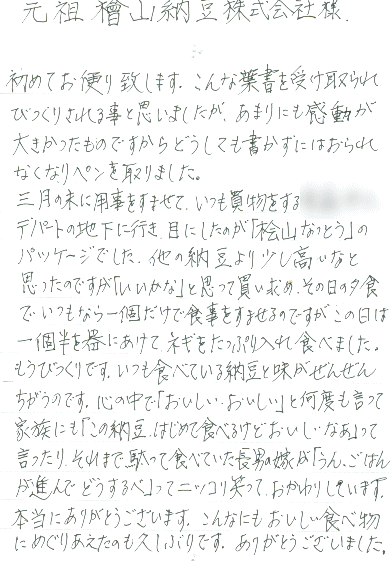 元祖檜山納豆株式会社様.
初めてお便り致します. こんな葉書を受け取られ
びっくりされる事と思いましたが, あまりにも感動が
大きかったものですからどうしても書かずにはおられ
なくなりペンを取りました.
三月の末に用事をすませて, いつも買物をする
デパートの地下に行き, 目にしたのが「桧山なっとう」の
パッケージでした. 他の納豆より少し高いなと
思ったのですが「いいかな」と思って買い求め, その日の夕食
で, いつもなら一個だけで食事をすませるのですがこの日は
一個半を器にあけて, ネギをたっぷり入れ食べました.
もうびっくりです. いつも食べている納豆と味がぜんぜん
ちがうのです. 心の中で「おいしい, おいしい」と何度も言って
家族にも「この納豆, はじめて食べるけどおいしいなあ」って
言ったり, それまで, 黙って食べていた長男の嫁が「うん, ごはん
が進んで どうするべ」ってニッコリ笑って, おかわりしています.
本当にありがとうございます. こんなにも おいしい食べ物
にめぐりあえたのも久しぶりです. ありがとうございました.